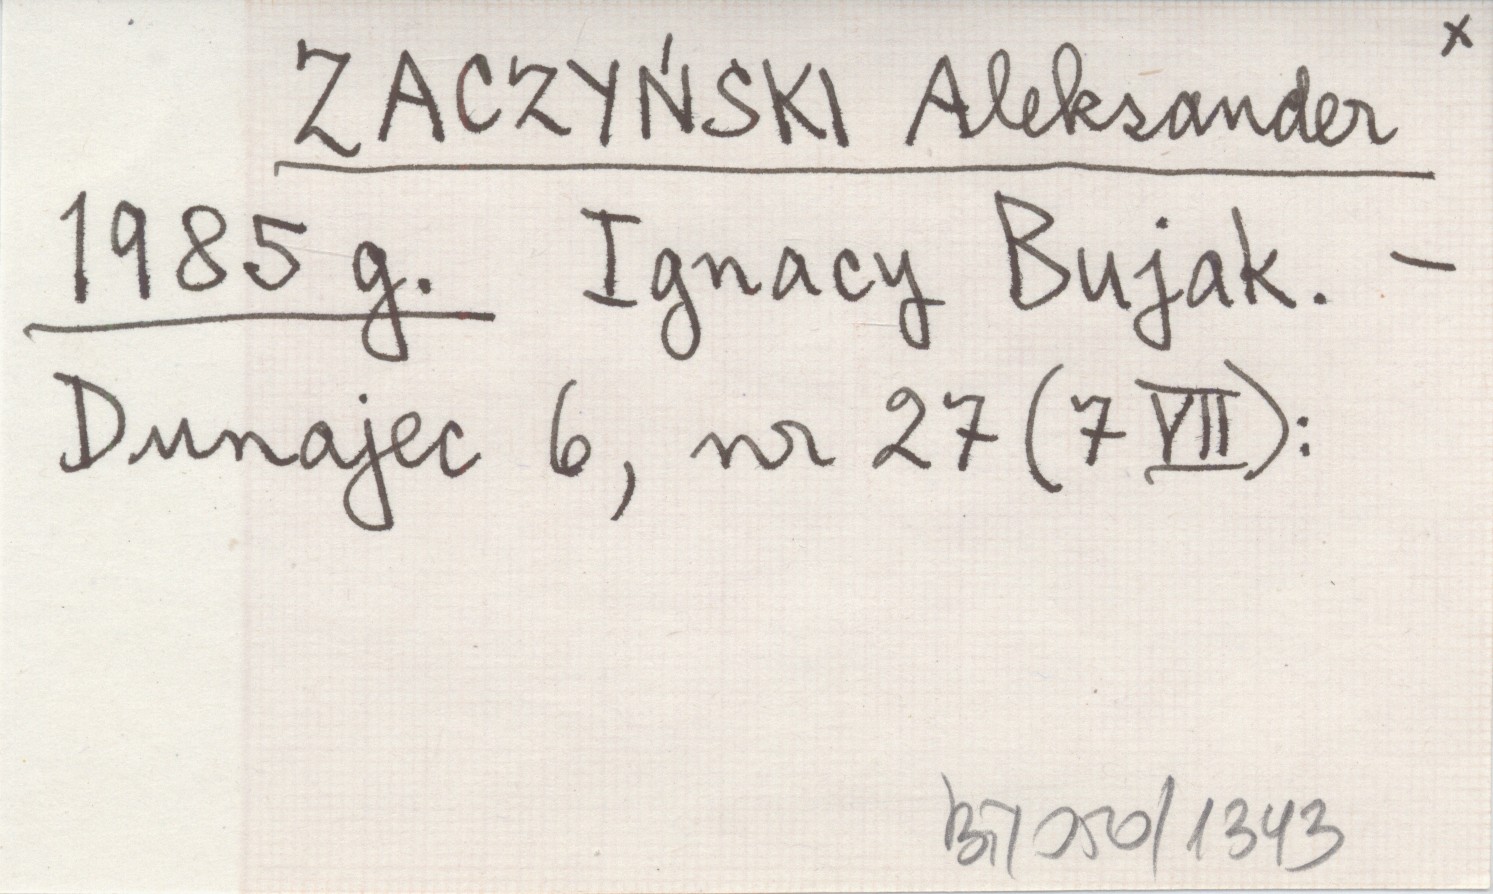 x
ZACZYŃSKI Aleksander
1985 g. Ignacy Bujak. –
Dunajec 6, nr 27 (7 VII):
/1343